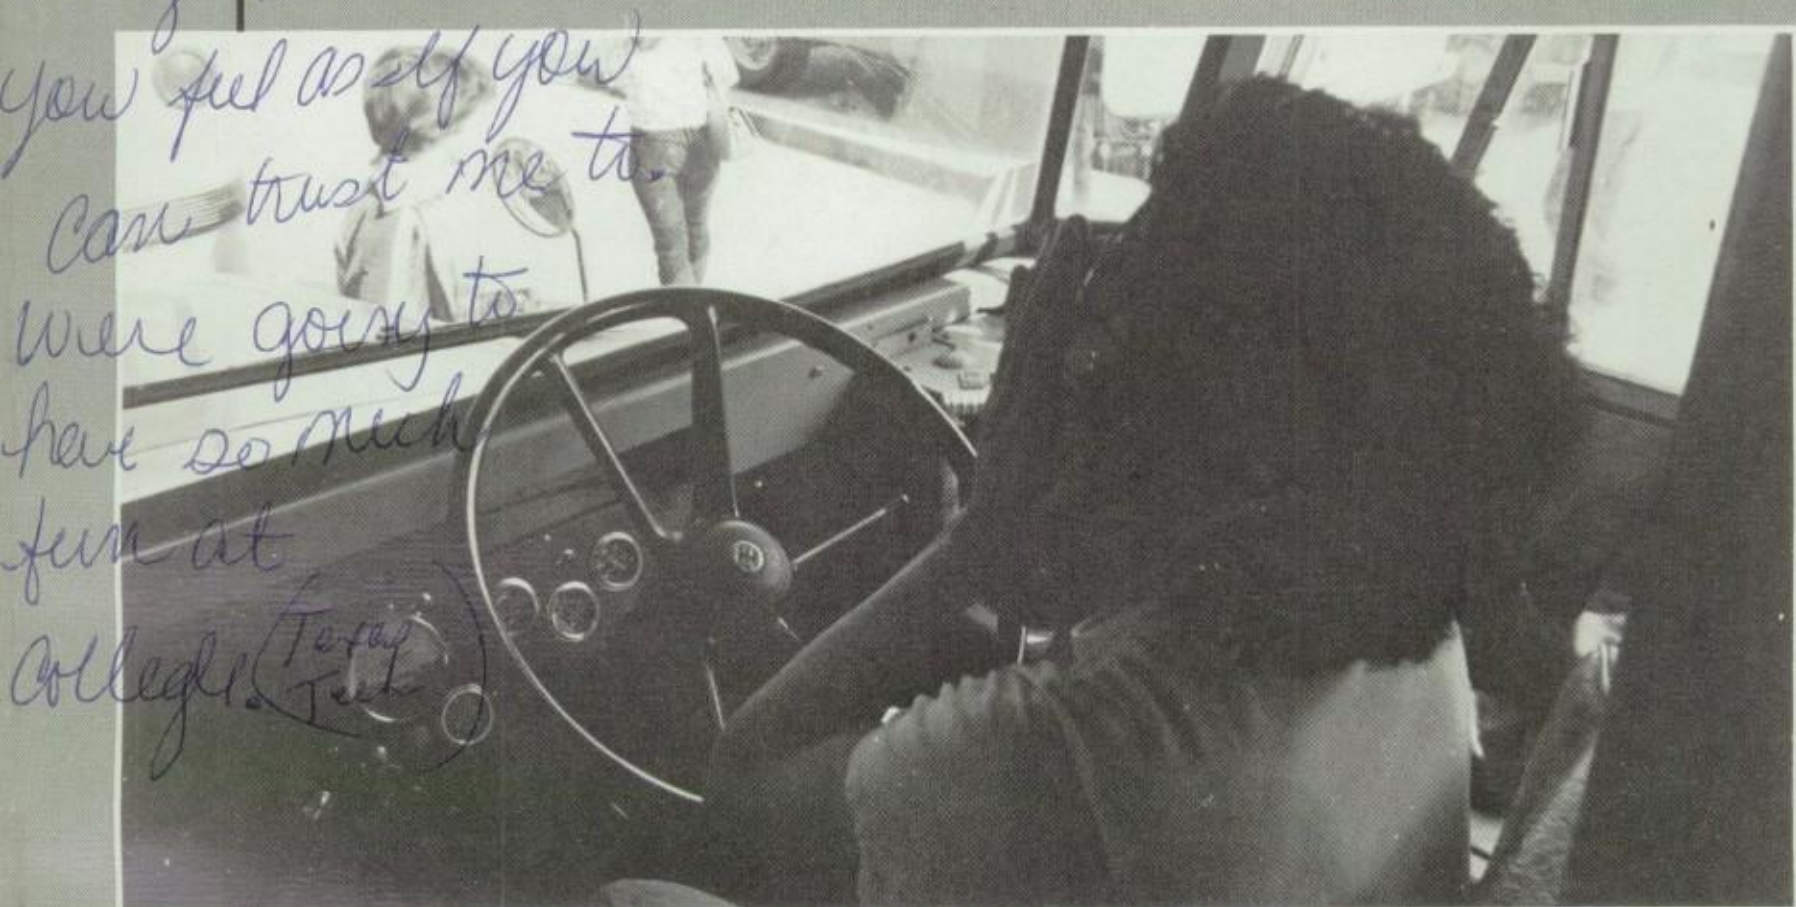 you feel as if you
can trust me to.
were going to
have so much
fun at
College. (Texas
Tech)